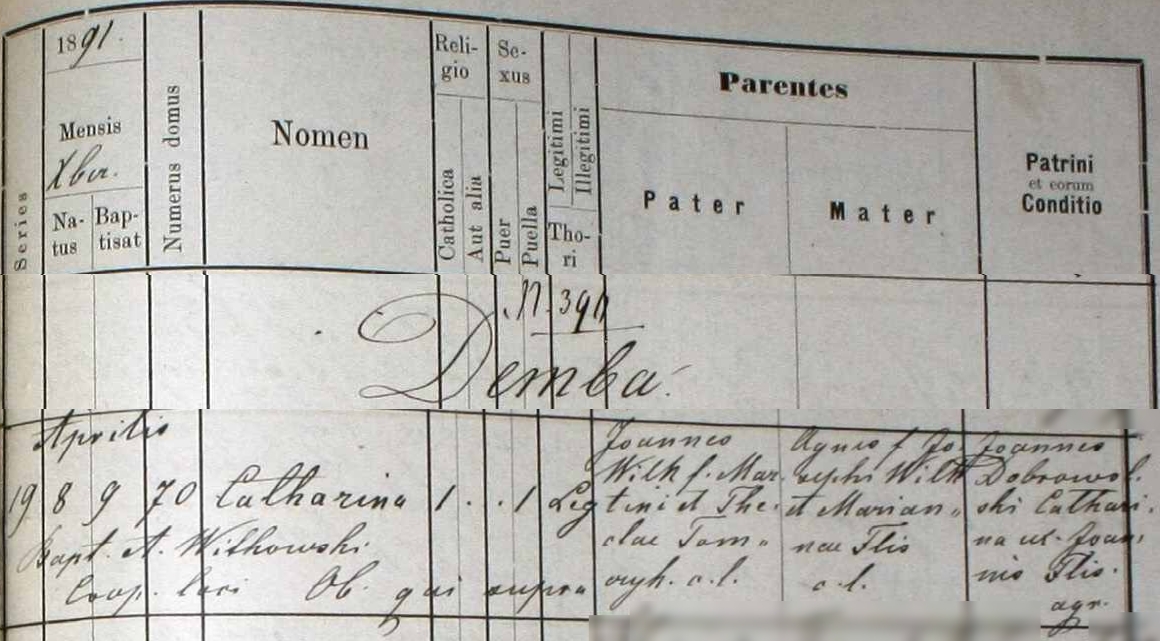 1891.
Mensis
Xber.
Series
Na-
tus
Bap-
tisat
Numerus domus
Nomen
Reli-
gio
Catholica
Aut alia
Se-
xus
Puer
Puella
Legitimi
Illegitimi
Tho-
ri
Parentes
Pater
Mater
Patrini
et eorum
Conditio
N. 391
Demba
Aprilis
19 8 9 70 Catharina 1 . . 1 Leg
Bapt. A. Witkowski
Coop. loci Ob. qui supra
Joannes
Wilk f. Mar-
tini et The-
clae Tom-
c.l.
Agnes f Jo
sephi Wilk
et Marian-
nae Flis
c.l.
Joannes
Dobrowol-
ski Cathari-
na ux. Joan-
nis Flis.
agr.